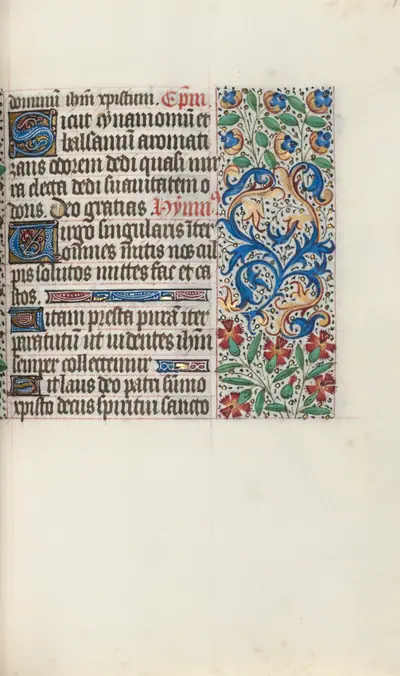 dominū ihm̄ xpistum. Epm̄.
Sicut cynamomū et
balsamū aromati
zans odorem dedi quasi mir
ra electa dedi suavitatem o
doris. Deo gratias. Hymnus
Virgo singularis iter
omnes mitis nos cul
pis solutos mittes fac et ca
stos.
Vitam presta purā iter
paratutū ut videntes ihm̄
semper collectemur
Sit laus deo patri sūmo
xpisto decus spiritui sancto